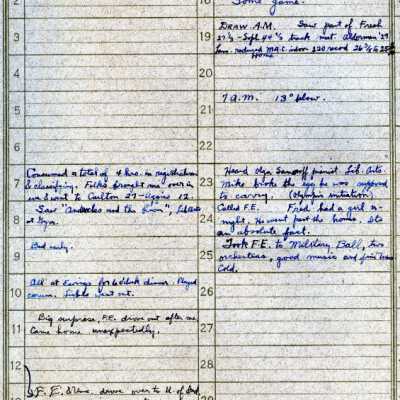 2
3
6
7
Consumed a total of 4 hrs. in registration
& classifying. Folks brought me over in
we I went to Carlton 27 - Agone 12.
8
Saw "Androcles and the Lion",
at Gym.
9
Bed early.
10
All at Earings for 6 o'clock dinner. Played
went out.
11
Big surprise. F.E. drove out after me.
Came home unexpectedly.
12
F. E. drove over to U. of
18
Some game.
19
DRAW A.M. Saw part of Fresh
27½ - Soph 44½ track meet Alderman '27
reduced MAC indoor 220 record 26 ¾ to 25
Home
20
21
7 A.M. 13° below.
22
Heard Olga Samaroff pianist Lib. Arts
Mike broke the egg he was supposed
23
to carry. (Olympic initiation)
Called F.E. "Fred" had a girl to-
24
night. He went past the house. Its
an absolute fact.
25
Took F.E. to Military Ball, two
orchestras, good music and fine time
26
Cold.
27
28